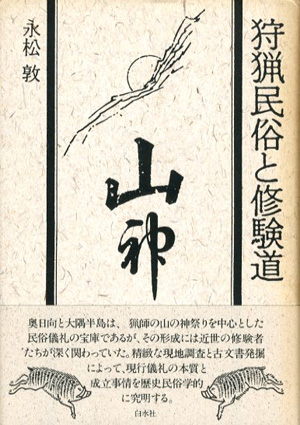 狩猟民俗と修験道
永松 敦
山神
奥日向と大隅半島は、猟師の山の神祭りを中心とした
民俗儀礼の宝庫であるが、その形成には近世の修験者
たちが深く関わっていた。精緻な現地調査と古文書発掘
によって、現行儀礼の本質と
成立事情を歴史民俗学的
に究明する。
白水社